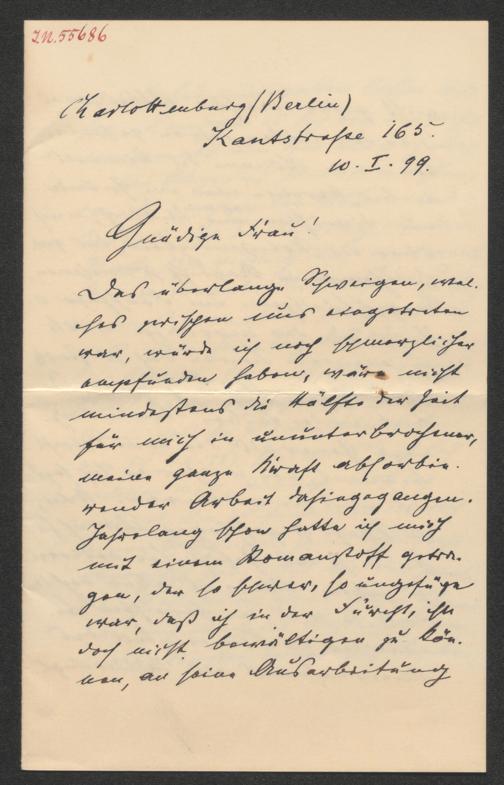 IN. 55686
Charlottenburg (Berlin)
Kantstraße 165.
10. I. 99.
Gnädige Frau!
Das überlange Schweigen, wel-
ches zwischen uns eingetreten
war, würde ich noch schmerzlicher
empfunden haben, wäre nicht
mindestens die Hälfte der Zeit
für mich in ununterbrochener,
meine ganze Kraft absorbie-
render Arbeit dahingegangen.
Jahrelang schon hatte ich mich
mit einem Romanstoff getra-
gen, der so schwer, so ungefüge
war, daß ich in der Furcht, ihn
doch nicht bewältigen zu kön-
nen, an seine Ausarbeitung